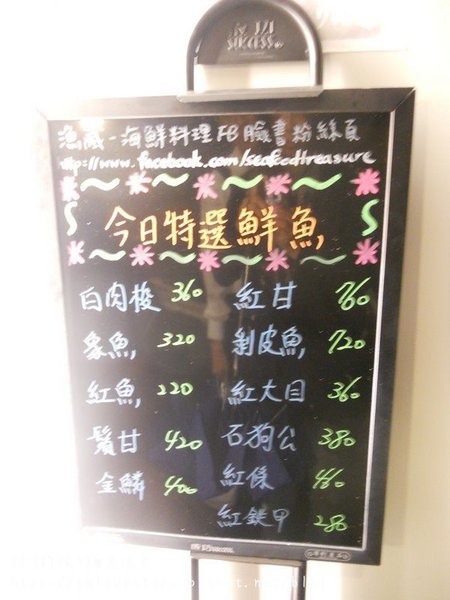 SUCCESS
漁藏-海鮮料理FB臉書粉絲頁
http://www.facebook.com/seafoodtreasure
今日特選鮮魚
白肉梭 360 紅甘 760
象魚 320 剝皮魚 720
紅魚 220 紅大目 360
鬚甘 420 石狗公 380
金鱗 400 紅條 460
紅鐵甲 280